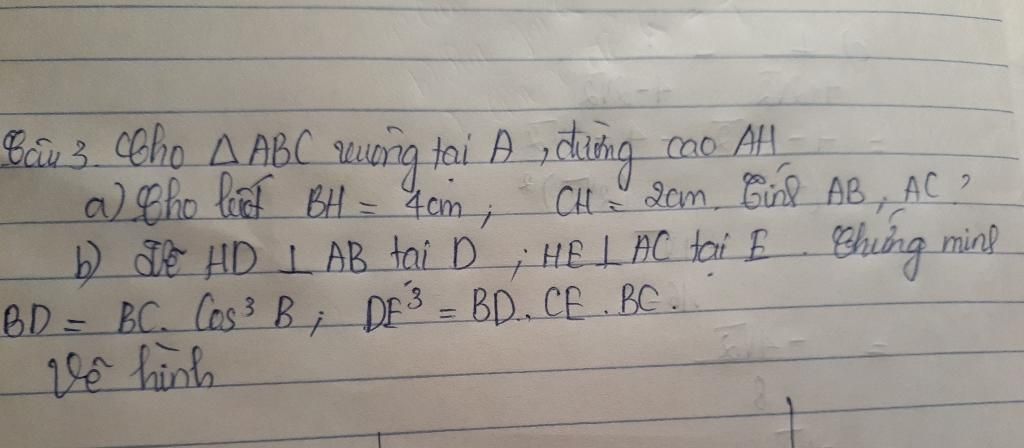 Câu 3. Cho △ ABC vuông tại A, đường cao AH
a) Cho biết BH = 4cm ; CH = 2cm. Tính AB, AC ?
b) Kẻ HD ⊥ AB tại D ; HE ⊥ AC tại E. Chứng minh
BD = BC. Cos³ B ; DE³ = BD. CE. BC.
Vẽ hình